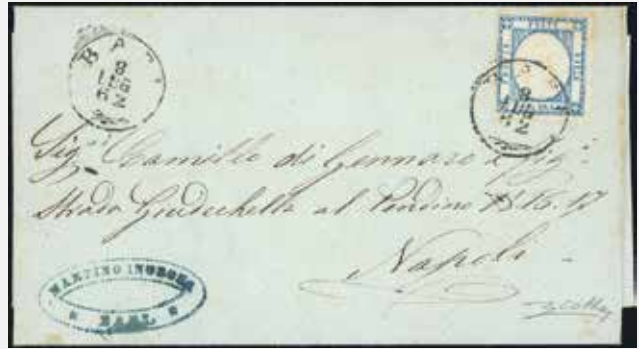 BARI
8
LUG
62
BARI
8
LUG
62
Sig. Camillo di Gennaro e fig.
Strada Giudechella al Pendino N. 17
Napoli
MARTINO INGROSS
BARI